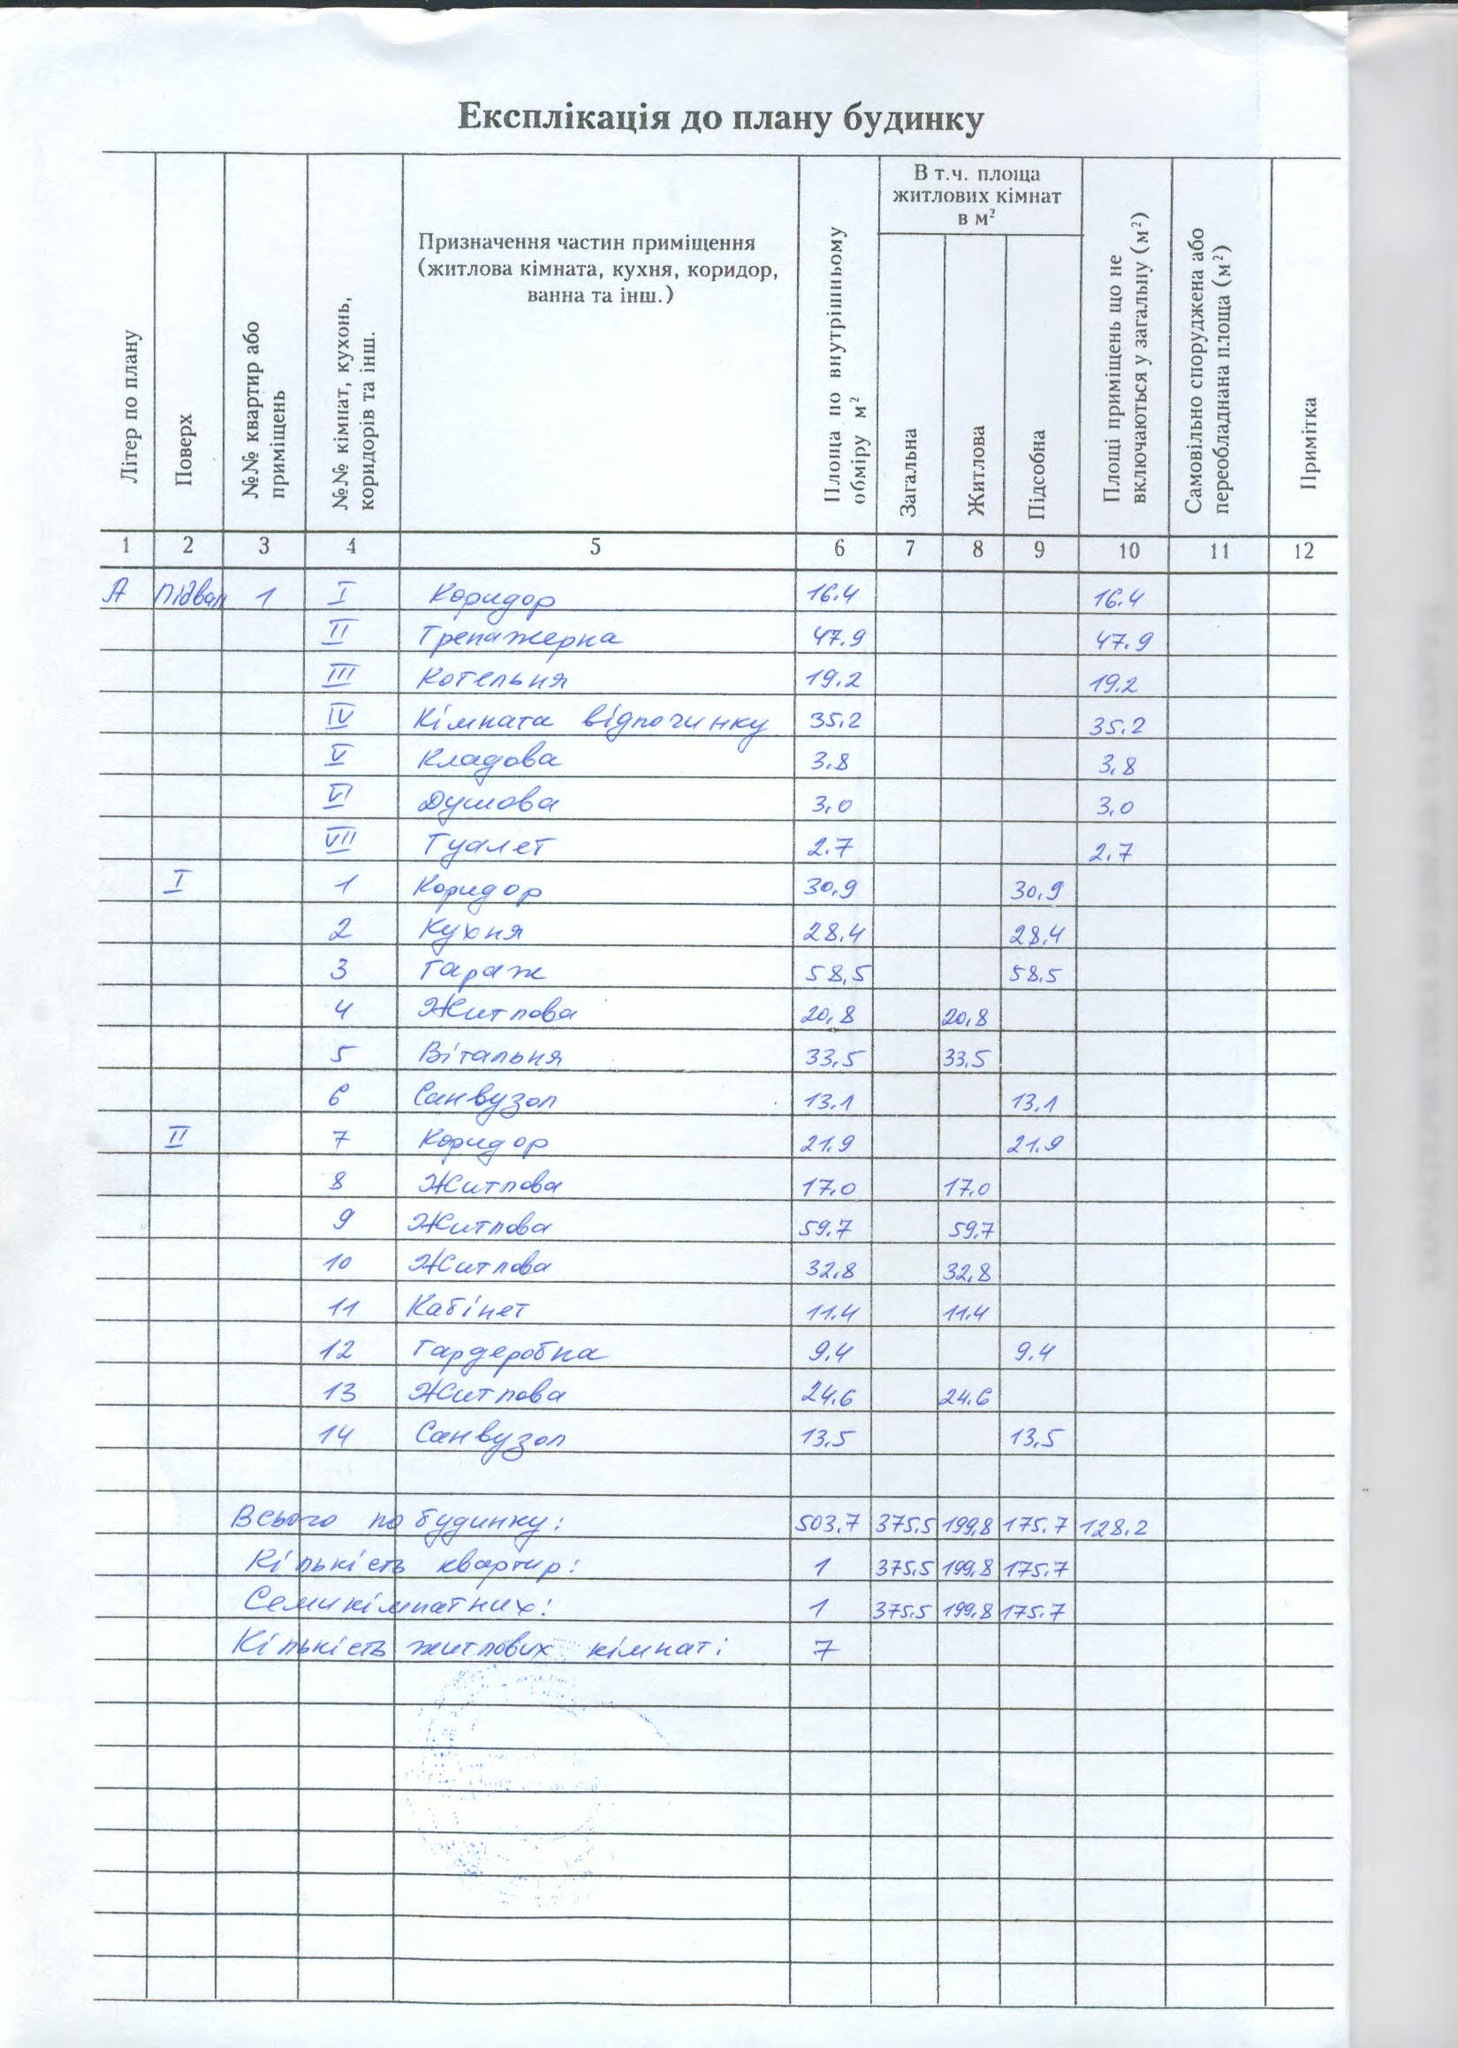 Експлікація до плану будинку
Літер по плану
Поверх
№№ квартир або приміщень
№№ кімнат, кухонь, коридорів та інш.
Призначення частин приміщення (житлова кімната, кухня, коридор, ванна та інш.)
Площа по внутрішньому обміру м²
В т.ч. площа житлових кімнат в м²
Загальна
Житлова
Підсобна
Площі приміщень що не включаються у загальну (м²)
Самовільно споруджена або переобладнана площа (м²)
Примітка
1 2 3 4 5 6 7 8 9 10 11 12
А підвал 1 I Коридор 16.4 16.4
II Тренажерна 47.9 47.9
III Котельня 19.2 19.2
IV Кімната відпочинку 35.2 35.2
V Кладова 3.8 3,8
VI Душова 3,0 3,0
VII Туалет 2.7 2.7
I 1 Коридор 30,9 30,9
2 Кухня 28.4 28.4
3 Гараж 58,5 58.5
4 Житлова 20,8 20,8
5 Вітальня 33,5 33,5
6 Санвузол 13.1 13.1
II 7 Коридор 21.9 21.9
8 Житлова 17.0 17.0
9 Житлова 59.7 59.7
10 Житлова 32.8 32,8
11 Кабінет 11.4 11.4
12 Гардеробна 9.4 9.4
13 Житлова 24.6 24.6
14 Санвузол 13,5 13,5
Всього по будинку: 503.7 375.5 199,8 175.7 128.2
Кількість квартир: 1 375.5 199,8 175.7
Семикімнатних: 1 375.5 199.8 175.7
Кількість житлових кімнат: 7